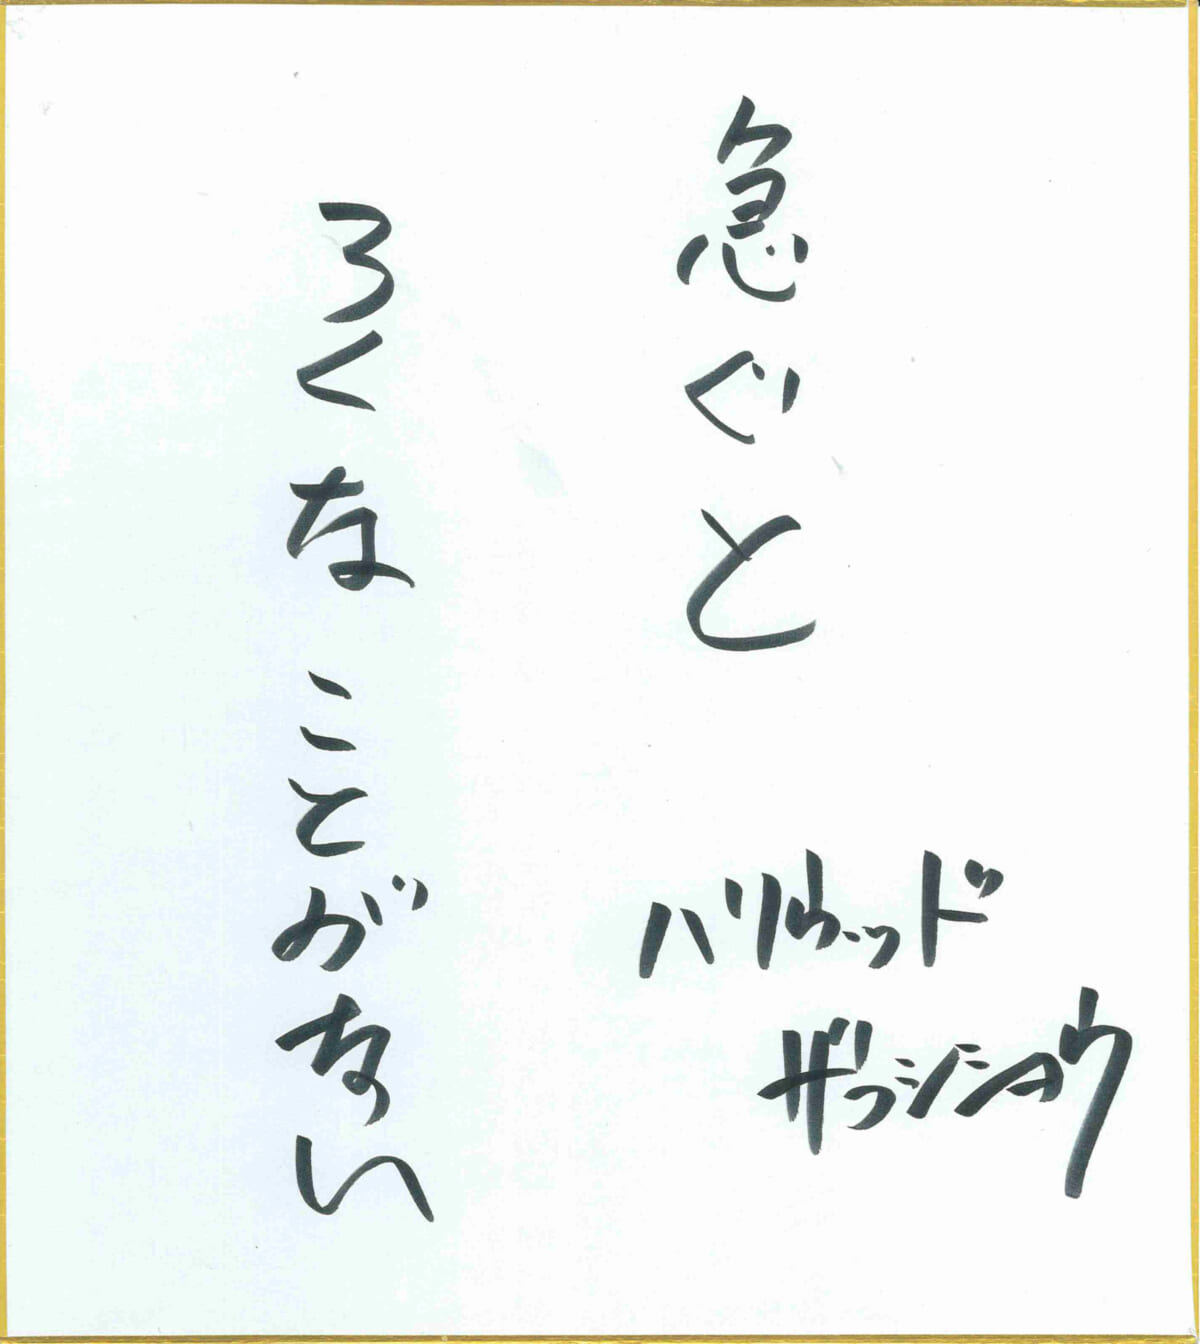 急ぐと
ろくなことがない
ハリウッド
ザコシショウ